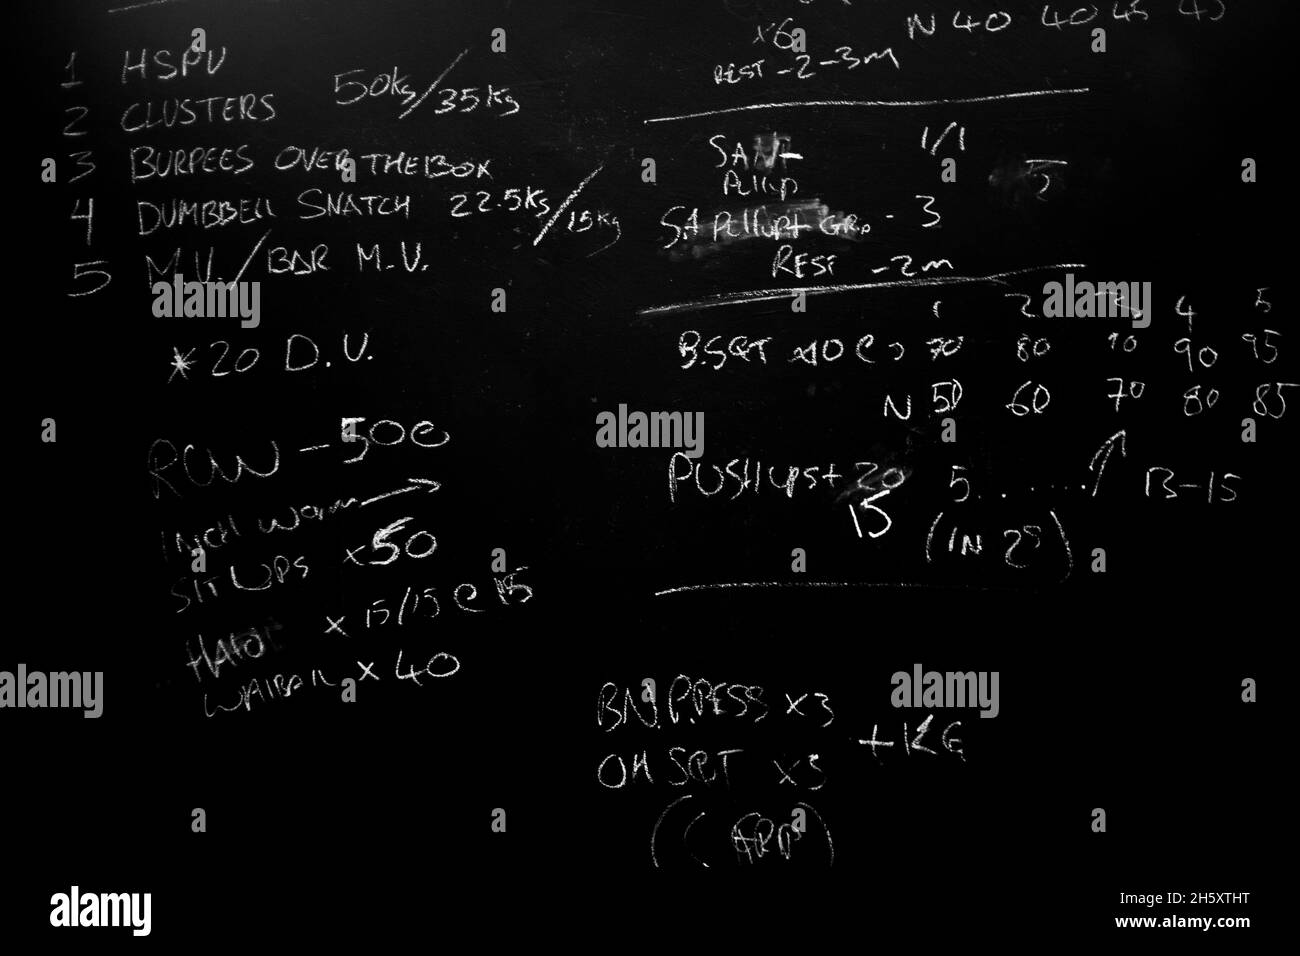 1 HSPU
2 CLUSTERS 50kg/35kg
3 BURPEES OVER THE BOX
4 DUMBBELL SNATCH 22.5Kg/15Kg
5 M.U./BAR M.U.
*20 D.U.
ROW - 500
INCH WORM →
SIT UPS x50
x 15/15 @ 15
WALLBALL x 40
N 40 40 45 45
x6
REST - 2-3m
1/1
PULLUP
PULLUP + GRIP - 3
REST - 2m
1 2 3 4 5
B.SQT x10 @ 70 80 90 90 95
N 50 60 70 80 85
PUSHUPS + 20 5....... B-15
15 (IN 2S)
P.PRESS x3
OH SQT x3 + KG
alamy
Image ID: 2H5XTHT
www.alamy.com